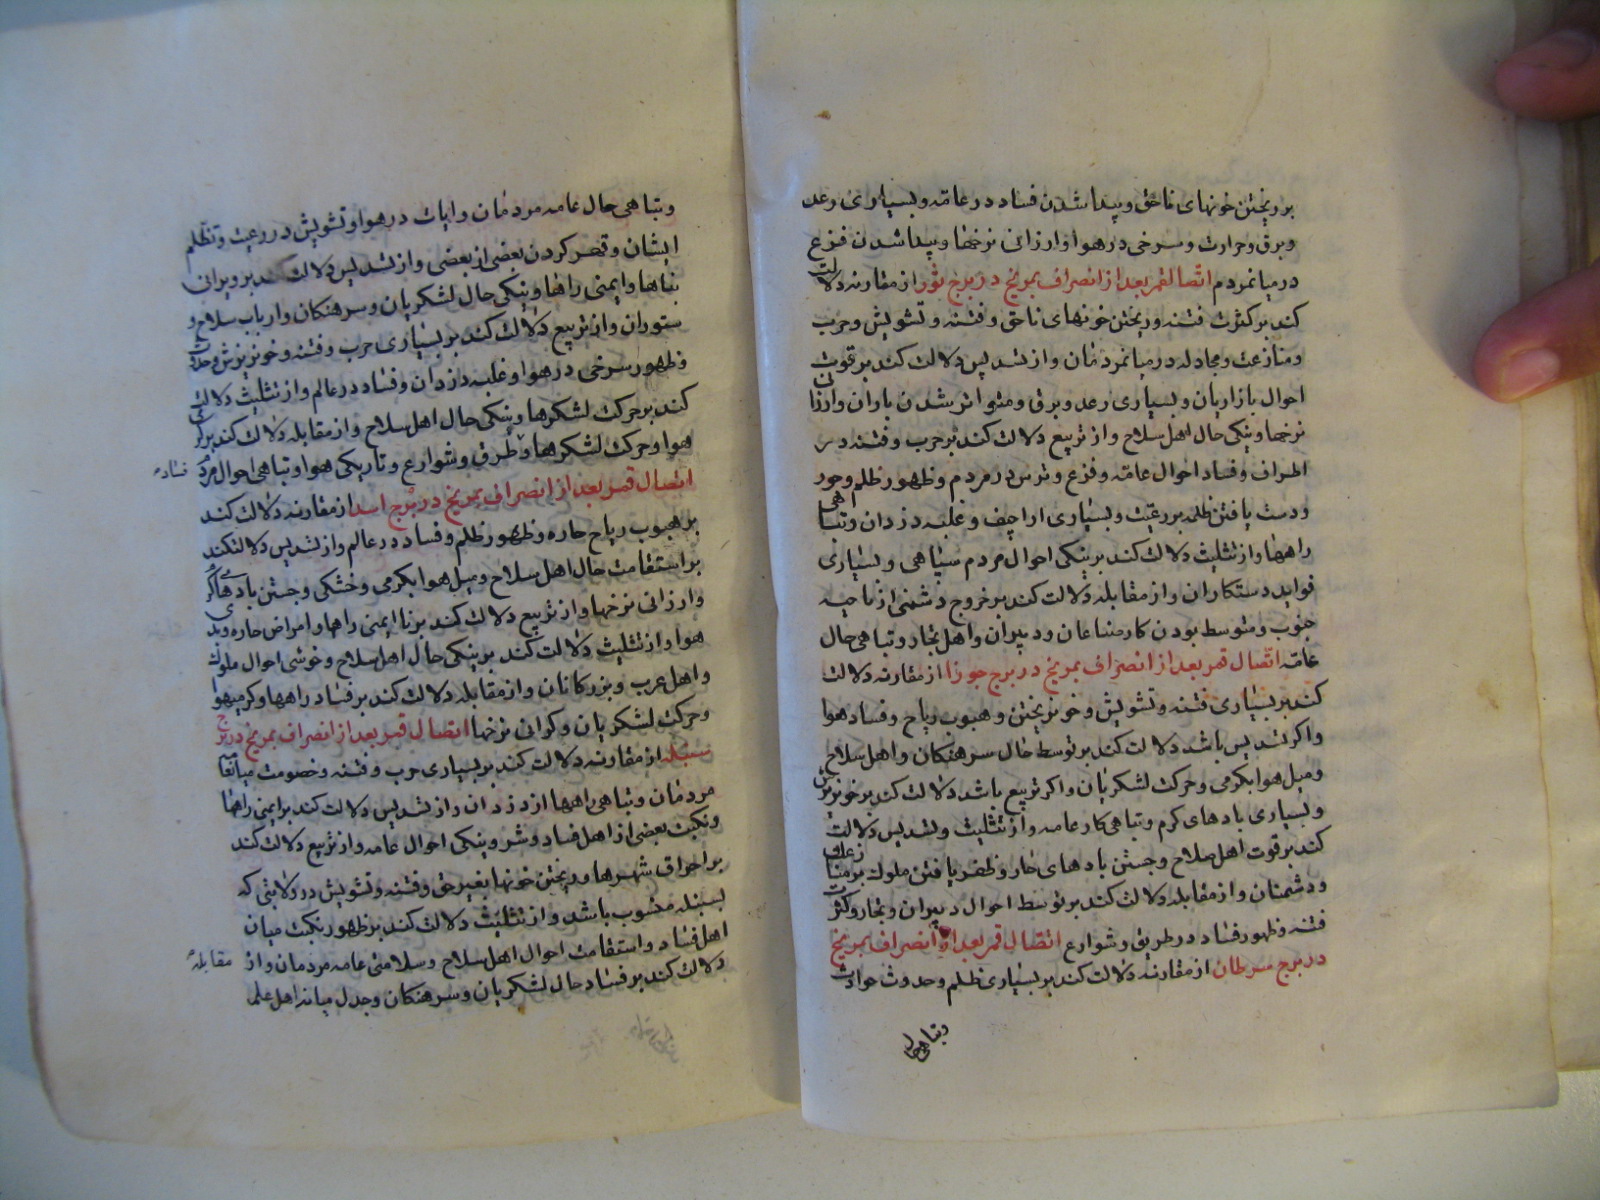 بر ریختن خونهای ناحق و پیدا شدن فساد در عامّه و بسیاری رعد
و برق و حرارت و سرخی در هوا و ارزانی نرخها و پیدا شدن فزع
در میان مردم اتّصال قمر بعد از انصراف بمریخ در برج ثور از مقارنه دلالت
کند بر کثرت فتنه و ریختن خونهای ناحق و فتنه و تشویش و حرب
و منازعت و مجادله در میان مردمان و از تسدیس دلالت کند بر قوت
احوال بازاریان و بسیاری رعد و برق و متواتر شدن باران و ارزانی
نرخها و نیکی حال اهل سلاح و از تربیع دلالت کند بر حرب و فتنه در
اطراف و فساد احوال عامّه و فزع و ترس در مردم و ظهور ظلم و جور
و دست یافتن ظلمه بر رعیت و بسیاری اراجیف و غلبه دزدان و تباهی
راهها و از تثلیث دلالت کند بر نیکی احوال مردم سپاهی و بسیاری
فواید دستکاران و از مقابله دلالت کند بر خروج دشمنی از ناحیه
جنوب و متوسط بودن کار صناعان و دبیران و اهل تجار و تباهی حال
عامّه اتّصال قمر بعد از انصراف بمریخ در برج جوزا از مقارنه دلالت
کند بر بسیاری فتنه و تشویش و خون ریختن و هبوب ریاح و فساد هوا
و اکر تسدیس باشد دلالت کند بر توسط حال سرهنکان و اهل سلاح
و میل هوا بکرمی و حرکت لشکریان و اکر تربیع باشد دلالت کند بر خون ریزش
و بسیاری بادهای کرم و تباهی کار عامه و از تثلیث و تسدیس دلالت
کند بر قوت اهل سلاح و جستن بادهای حار و ظفر یافتن ملوک بر منازعان
و دشمنان و از مقابله دلالت کند بر توسط احوال دبیران و تجار و کثرت
فتنه و ظهور فساد در طریق و شوارع اتصال قمر بعد از انصراف بمریخ
در برج سرطان از مقارنه دلالت کند بر بسیاری ظلم و حدوث حوادث
و تباهی حال
و تباهی حال عامه مردمان و ایات در هوا و تشویش در رعیت و تظلم
ایشان و قهر کردن بعضی از بعضی و از تسدیس دلالت کند بر ویرانی
بناها و ایمنی راهها و نیکی حال لشکریان و سرهنکان و ارباب سلاح و
ستوران و از تربیع دلالت کند بر بسیاری حرب و فتنه و خون ریزش و حادث
و ظهور سرخی در هوا و غلبه دزدان و فساد در عالم و از تثلیث دلالت
کند بر حرکت لشکرها و نیکی حال اهل سلاح و از مقابله دلالت کند بر کرمی
هوا و حرکت لشکرها و طرق و شوارع و تاریکی هوا و تباهی احوال مردم
فساد
اتصال قمر بعد از انصراف بمریخ در برج اسد از مقارنه دلالت کند
بر هبوب ریاح حاره و ظهور ظلم و فساد در عالم و از تسدیس دلالت کند
بر استقامت حال اهل سلاح و میل هوا بکرمی و خشکی و جستن بادهای کرم
و ارزانی نرخها و از تربیع دلالت کند بر نا ایمنی راهها و امراض حاره و بدی
هوا و از تثلیث دلالت کند بر نیکی حال اهل سلاح و خوشی احوال ملوک
و اهل عرب و بزرکانان و از مقابله دلالت کند بر فساد راهها و کرمی هوا
و حرکت لشکریان و کرانی نرخها اتصال قمر بعد از انصراف بمریخ در برج
سنبله از مقارنه دلالت کند بر بسیاری حرب و فتنه و خصومت میانه
مردمان و تباهی راهها از دزدان و از تسدیس دلالت کند بر ایمنی راهها
و نکبت بعضی از اهل فساد و شر و نیکی احوال عامه و از تربیع دلالت کند
بر احراق شهرها و ریختن خونها بغیر حق و فتنه و تشویش در ولایتی که
بسنبله منسوب باشد و از تثلیث دلالت کند بر ظهور نکبت میان
اهل فساد و استقامت احوال اهل سلاح و سلامتی عامه مردمان و از
مقابله
دلالت کند بر فساد حال لشکریان و سرهنکان و جدل میانه اهل علم